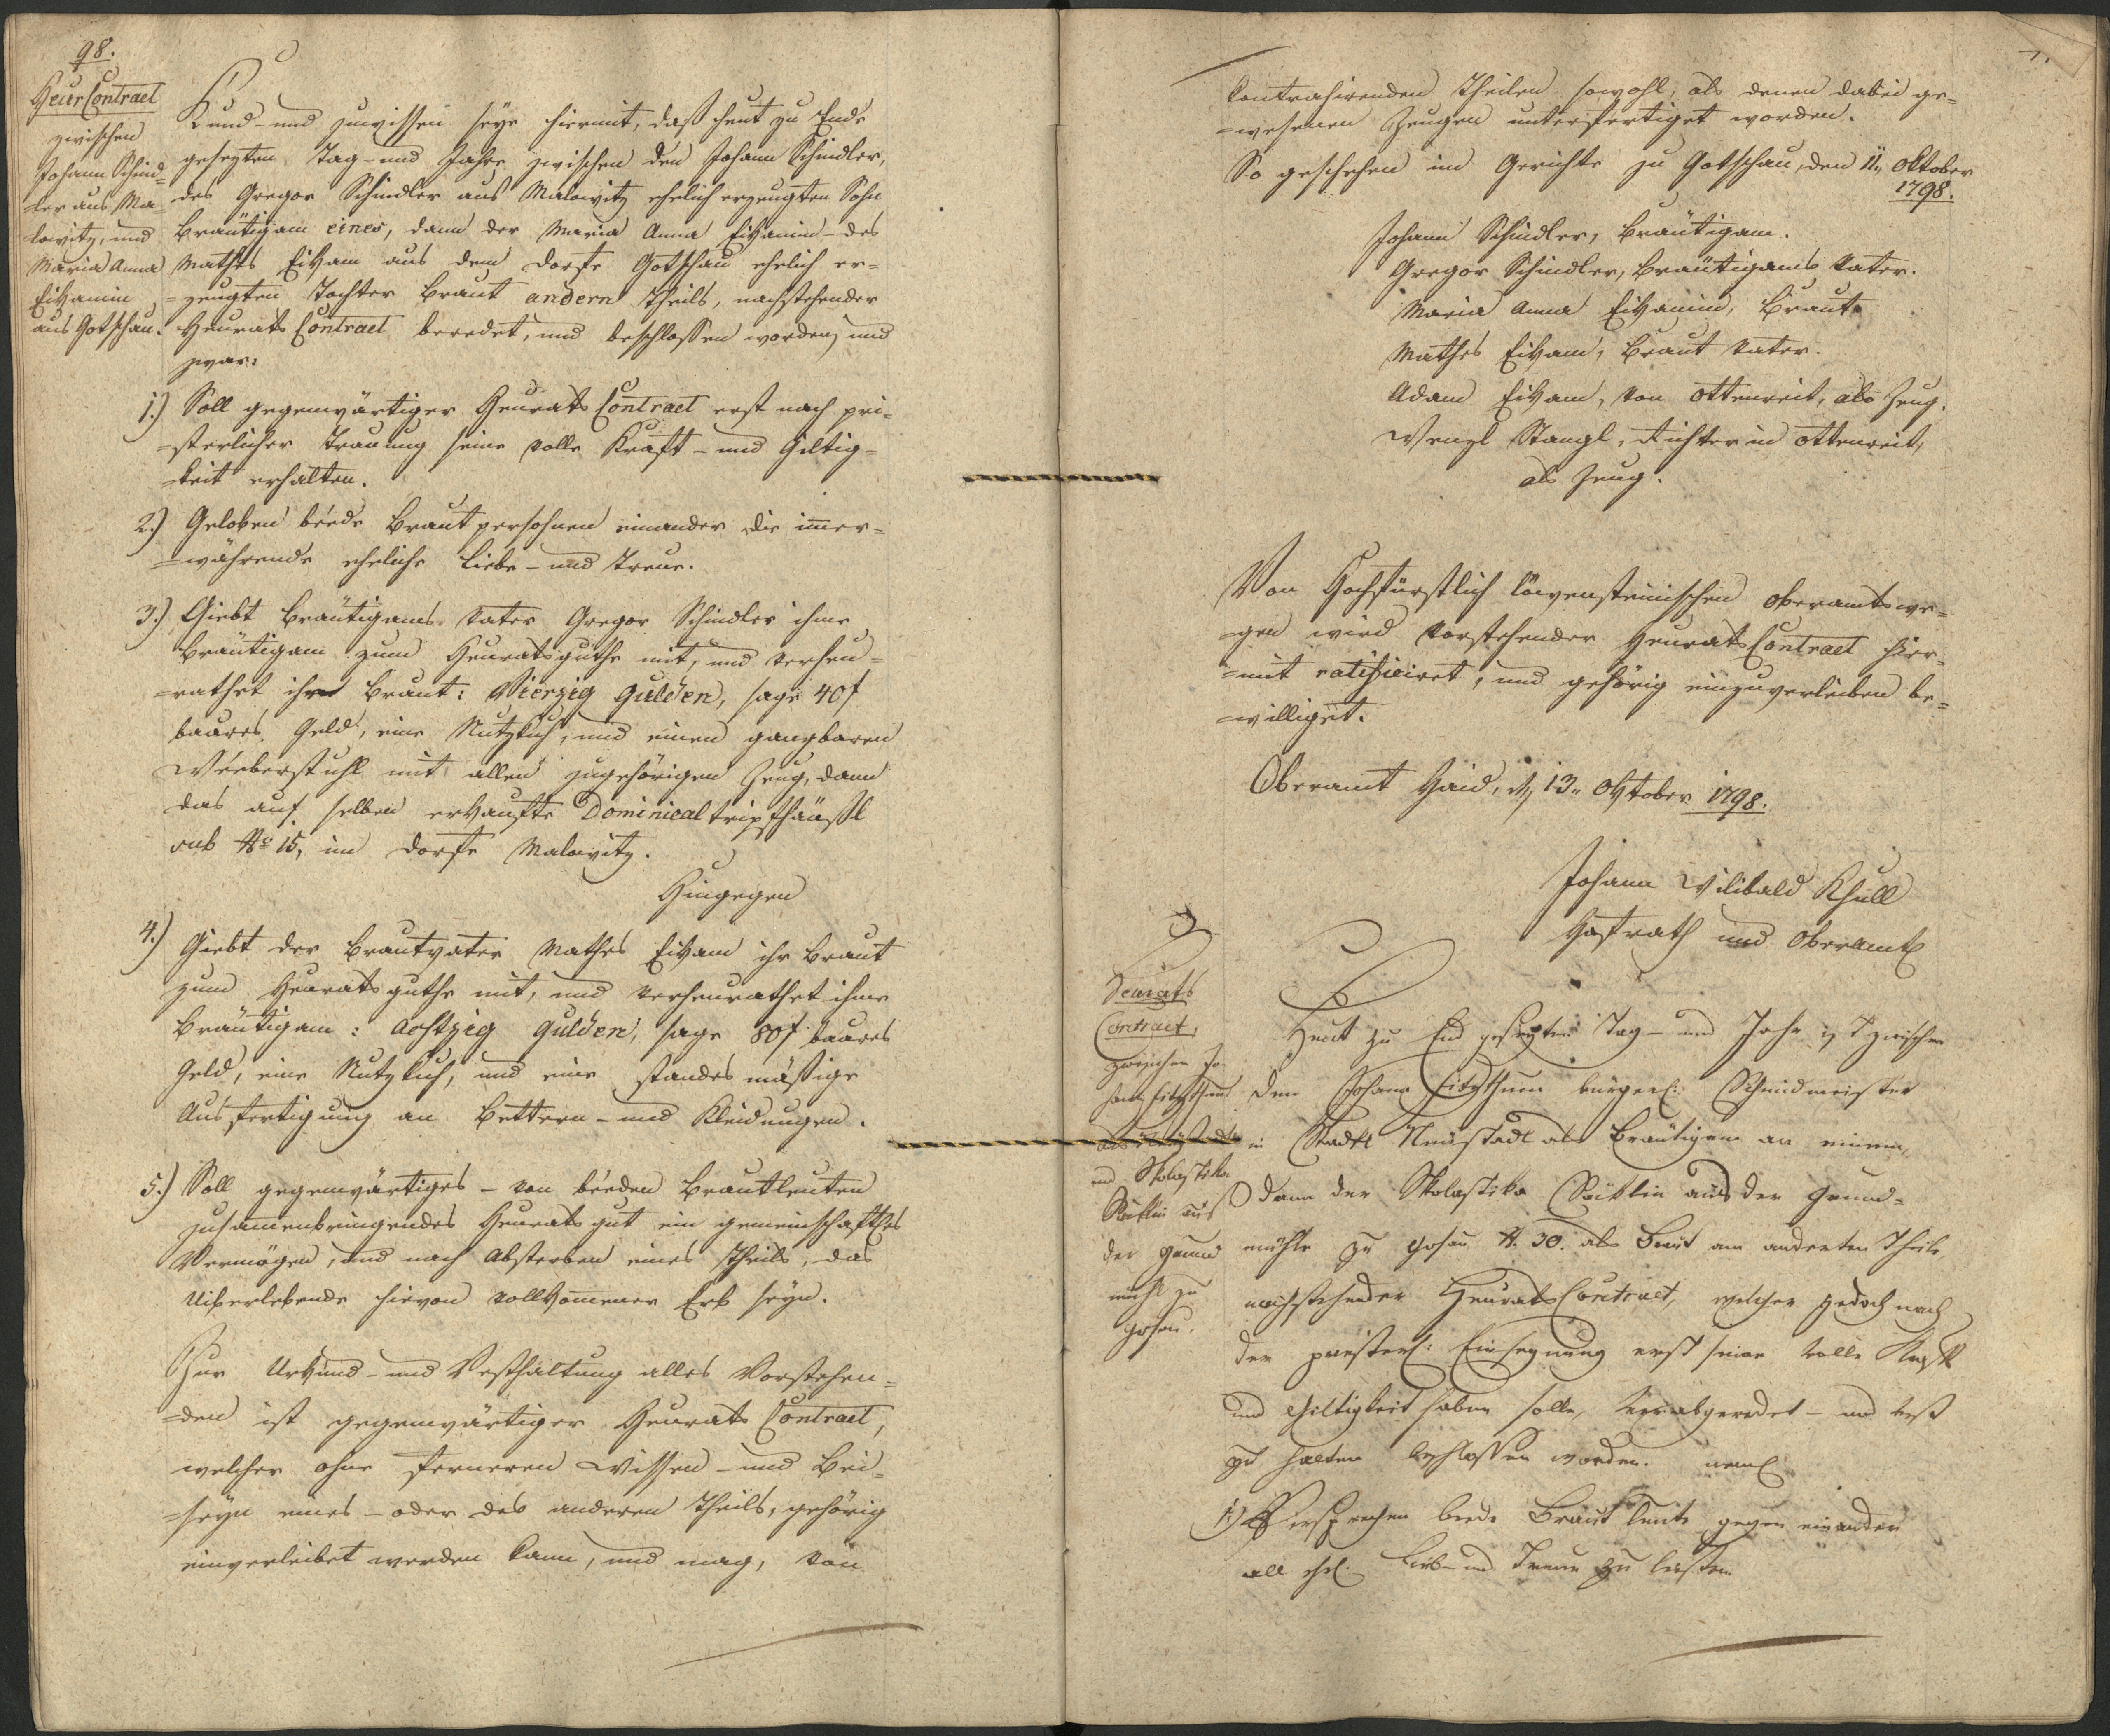 98.
HeurContract
zwischen
Johann Schind=
ler aus Ma=
lowitz, und
Maria Anna
Eikamin
aus Gotschau.
Kund- und zuwissen seye hiermit, daß heut zu Ende
gesezten Tag- und Jahre zwischen den Johann Schindler,
des Gregor Schindler aus Malowitz ehelich erzeugten Sohn
Bräutigam eines, dann der Maria Anna Eikamin- des
Mathes Eikam aus dem Dorfe Gotschau ehelich er=
=zeugten Tochter Braut andern Theils, nachstehender
Heurats Contract beredet, und beschlossen worden, und
zwar:
1.) Soll gegenwärtiger Heurats Contract erst nach pri=
=sterlicher Trauung seine volle Kraft- und Giltig=
=keit erhalten.
2.) Geloben beede Brautpersohnen einander die im̄er=
=währende eheliche Liebe- und Treue.
3.) Giebt Bräutigams Vater Gregor Schindler ihme
Bräutigam zum Heuratsguthe mit, und verheu=
=rathet ihr Braut: Vierzig Gulden, sage 40 f
baares Geld, eine Nutzkuh, und einen gangbaren
Wéeberstuhl mit allen zugehörigen Zeug, dann
das auf selben erkaufte Dominicaltripfhäußl
sub No 15, im Dorfe Malowitz.
Hingegen
4.) Giebt der Brautvater Mathes Eikam ihr Braut
zum Heuratsguthe mit, und verheurathet ihme
Bräutigam: Achtzig Gulden, sage 80 f baares
Geld, eine Nutzkuh, und eine standesmäßige
Ausfertigung an Bettern- und Kleidungen.
5.) Soll gegenwärtiges- von béeden Brautleuten
zusam̄enbringendes Heuratsgut ein gemeinschaftliches
Vermögen, und nach Absterben eines Theils, das
Uiberlebende hievon vollkom̄ener Erb seyn.
Zur Urkund- und Vesthaltung alles Vorstehen=
=den ist gegenwärtiger Heurats Contract,
welcher ohne ferneren Wissen- und Bei=
=seyn eines- oder des anderen Theils, gehörig
einverleibet werden kann, und mag, von
7.
kontrahirenden Theilen sowohl, als denen dabei ge=
=wesenen Zeugen unterfertiget worden.
So geschehen im Gerichte zu Gotschau, den 11. Oktober
1798.
Johann Schindler, Bräutigam.
Gregor Schindler, Bräutigams Vater.
Maria Anna Eikamin, Braut
Mathes Eikam, Braut Vater.
Adam Eikam, von Ottenreit, als Zeug.
Wenzl Stangl, Richter in Ottenreit,
als Zeug.
Von Hochfürstlich löwensteinischen Oberamtswe=
=gen wird vorstehender Heurats Contract hier=
=mit ratificiret, und gehörig einzuverleiben be=
=williget.
Oberamt Haid, den 13. Oktober 1798.
Johann Wilibald Khull
Hofrath und Oberamt
Heurats
Contract,
zwischen Jo=
hann Fitzthum
aus Neustadt
und Skolastika
aus
der Grund
mühl zu
Gosau.
Heut zu End gesezten Tag- und Jahr ist zwischen
dem Johann Fitzthum bürgerl: Schmidmeister
in Stadtl Neustadtl als Bräutigam an einem,
dann der Skolastika aus der Grund=
mühle zu Gosau N. 30. als Braut am anderten Theile
nachstehender Heurats Contract, welcher jedoch nach
der priesterl: Einsegnung erst seine volle Kraft
und Giltigkeit haben solle, verabgeredet- und vest
zu halten beschlossen worden. neml
1.) Versprechen beede Brautleute gegen einander
all ehel. Lieb- und Treue zu leisten